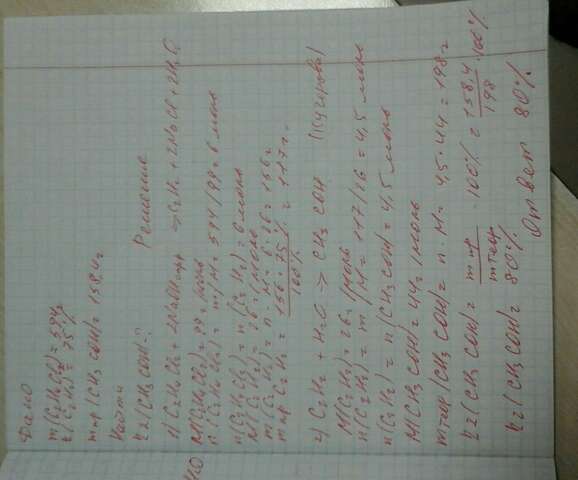 Дано
m(C2H4Cl2)=594г
η(C2H2)=75%
mпр(CH3COH)=158,4г
Найти
η2(CH3COH)-?
Решение
1) C2H4Cl2 + 2NaOH спир → C2H2 + 2NaCl + 2H2O
M(C2H4Cl2)=99г/моль
n(C2H4Cl2)=m/M=594/99=6моль
n(C2H4Cl2)=n(C2H2)=6моль
M(C2H2)=26г/моль
m(C2H2)=n·M=6·26=156г
mпр C2H2=156·75%/100%=117г.
2) C2H2 + H2O → CH3COH (Кучерова)
M(C2H2)=26г/моль
n(C2H2)=m/M=117/26=4,5моль
n(C2H2)=n(CH3COH)=4,5моль
M(CH3COH)=44г/моль
mтеор(CH3COH)=n·M=4,5·44=198г
η2(CH3COH)=mпр/mтеор·100%=158,4/198·100%
η2(CH3COH)=80%
Ответ 80%